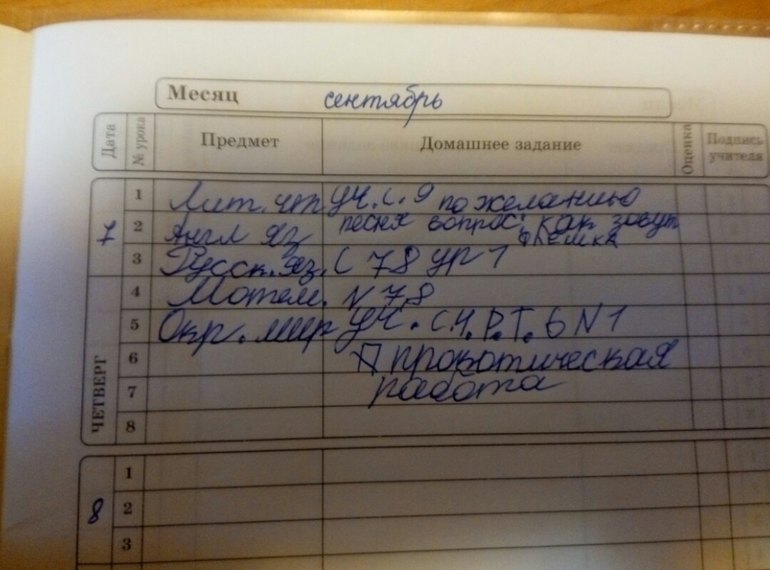 Месяц сентябрь
Дата № урока Предмет Домашнее задание Оценка Подпись учителя
7 ЧЕТВЕРГ
1 Лит. чт. уч. с. 9 по желанию
2 Англ яз песня вопрос: как зовут
флешка
3 Русск. яз. с 78 ур 1
4 Матем. № 7,8
5 Окр. мир уч. с. 4. Р.Т. 6 N 1
6 прокотическая
7 работа
8
8
1
2
3